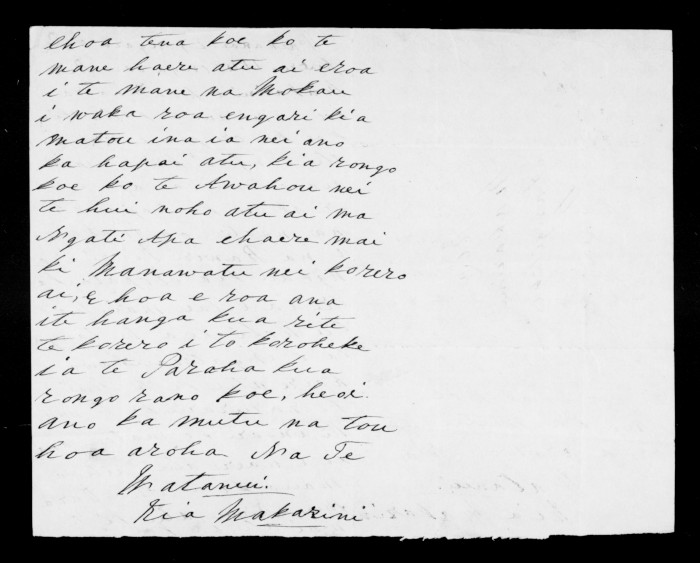 ehoa tena koe ko te
mane haere atu ai eroa
i te mane na Mokau
i waka roa engari kia
matou ina ia nei ano
ka hapai atu, kia rongo
koe ko te Awahou nei
te hui noho atu ai ma
Ngati Apa ehaere mai
ki Manawatu nei korero
ai, E hoa e roa ana
ite hanga kua rite
te korero i to koroheke
ia te Paraha kua
rongo rano koe, heoi
ano ka mutu na tou
hoa aroha Na Te
Watanui.
Kia Makarini